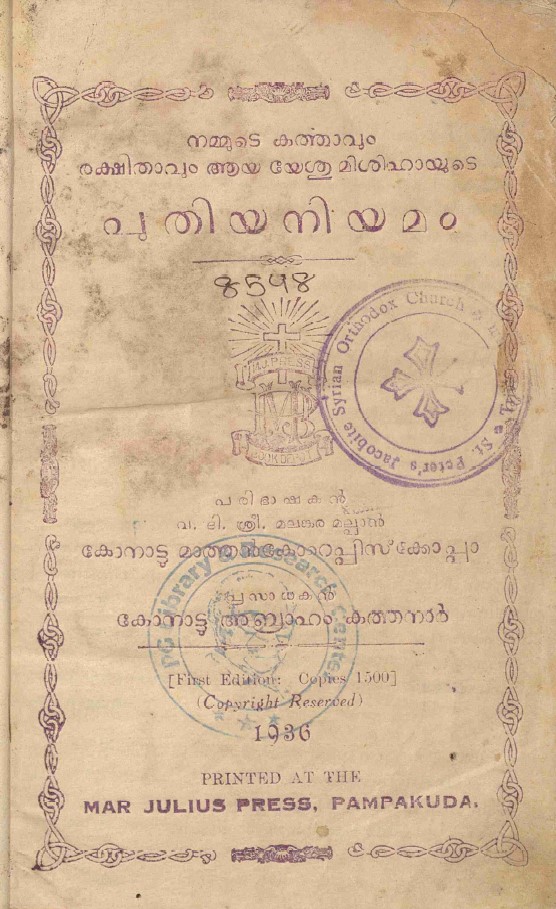 നമ്മുടെ കൎത്താവും
രക്ഷിതാവും ആയ യേശു മിശിഹായുടെ
പുതിയനിയമം
8548
M.J. PRESS
BOOK DEPOT
Jacobite Syrian Orthodox Church
St. Peter's
പരിഭാഷകൻ
വ. ദി. ശ്രീ. മലങ്കര മല്പാൻ
കോനാട്ടു മാത്തൻകോറെപ്പിസ്ക്കോപ്പാ
Library & Research Centre
പ്രസാധകൻ
കോനാട്ടു അബ്രാഹം കത്തനാർ
[First Edition: Copies 1500]
(Copyright Reserved)
1936
PRINTED AT THE
MAR JULIUS PRESS, PAMPAKUDA.